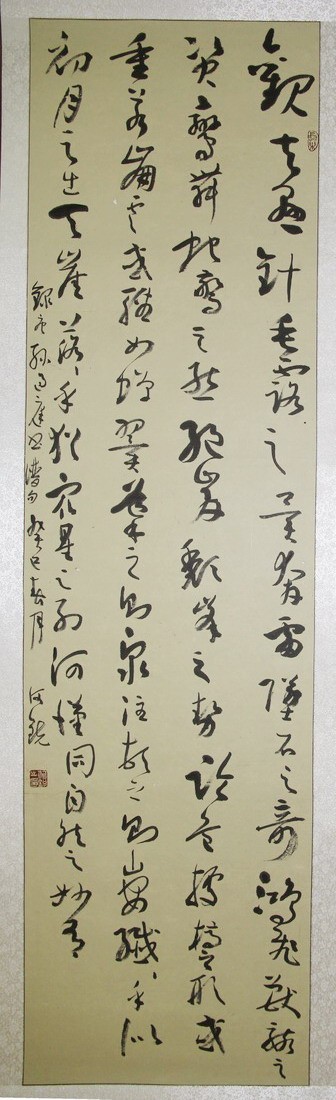 觀夫懸針垂露之異奔雷墜石之奇鴻飛獸駭之
資鸞舞蛇驚之態絕岸頹峯之勢臨危據槁之形或
重若崩雲或輕如蟬翼導之則泉注頓之則山安纖々乎似
初月之出天崖落々乎猶衆星之列河漢同自然之妙有
錄唐孫過庭書譜句 癸巳春月